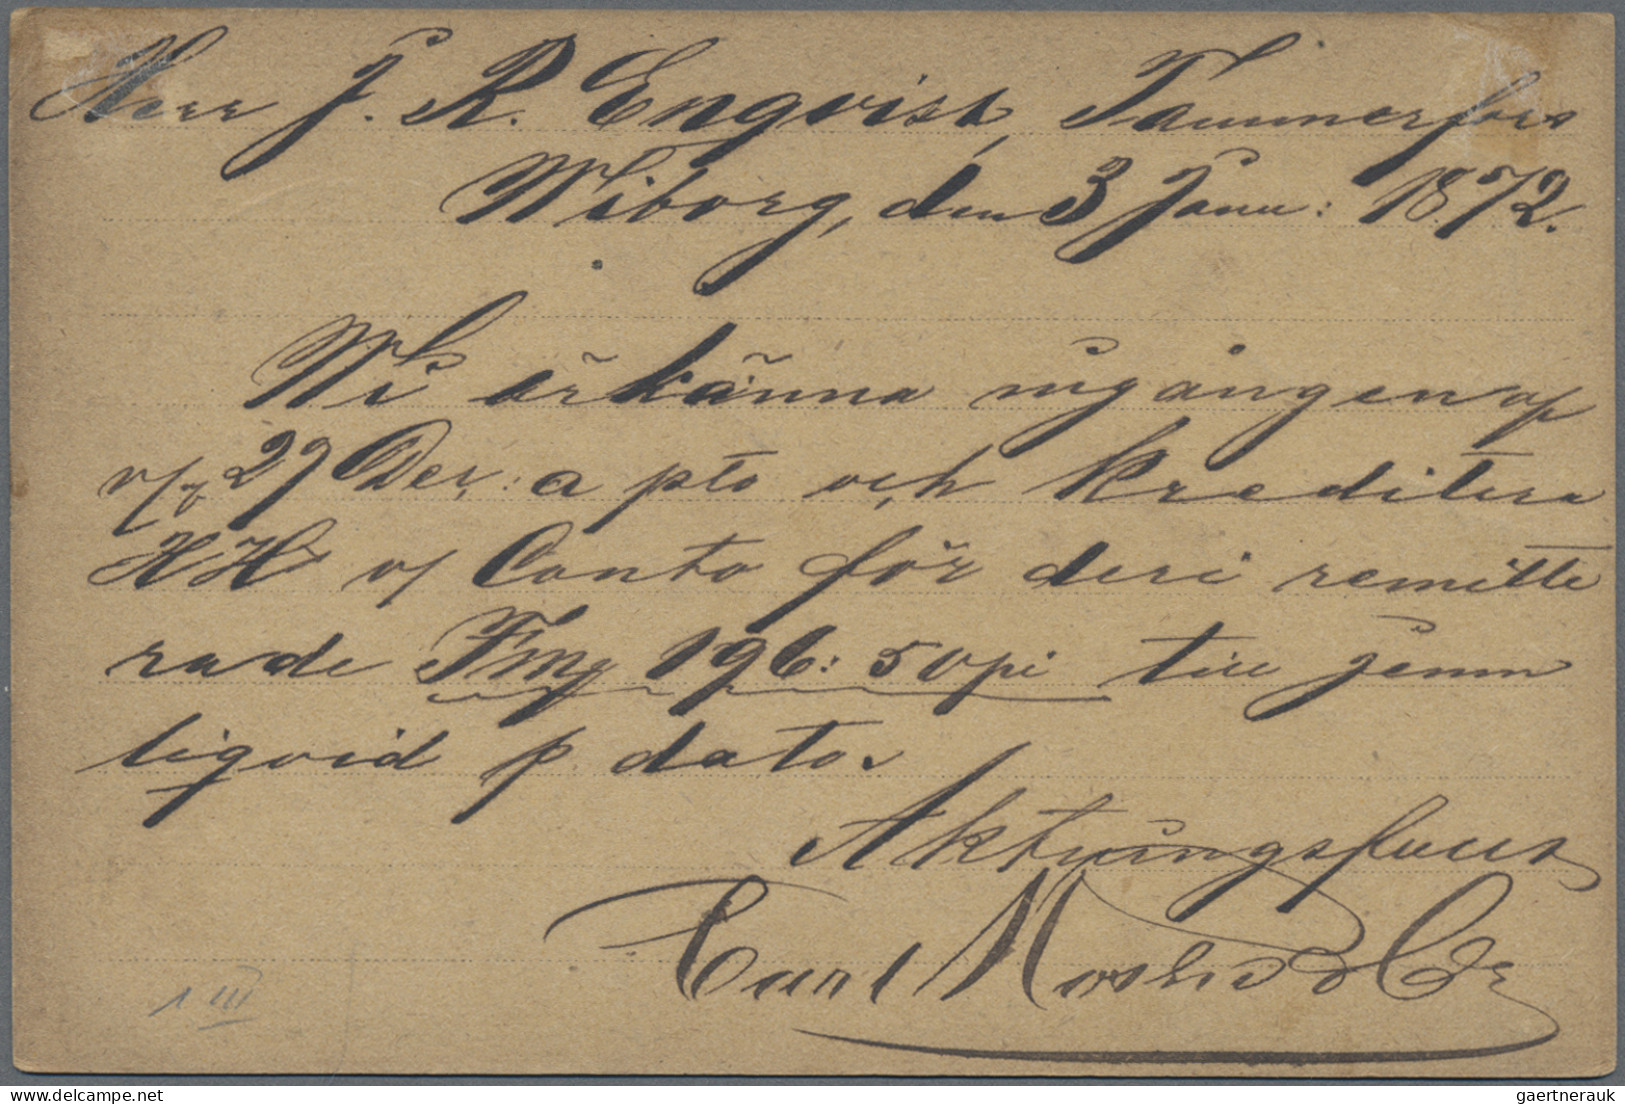 Herr J. R. Engvist, Tammerfors
Wiborg, den 3 Janu: 1872.
Wi erkänna ingången af
v/s 27 Dec: a pto och kreditera
HH v/ Conto för deri remitte
rade Fmg 196: 50 pi till jemn
liqvid p. dato.
Aktningsfullt
Carl & Co
1 III
gaertnerauk